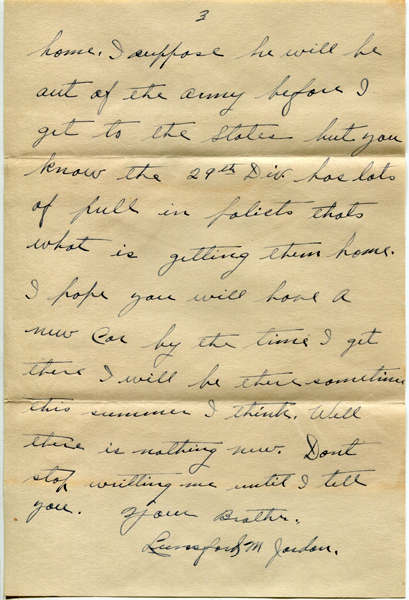 3
home. I suppose he will be
out of the army before I
get to the states but you
know the 29th Div. has lots
of pull in policts thats
what is getting them home.
I hope you will have a
new Car by the time I get
there I will be there sometime
this summer I think. Well
there is nothing new. Dont
stop writting me until I tell
you. Your Brother.
Lunsford M Jordan.